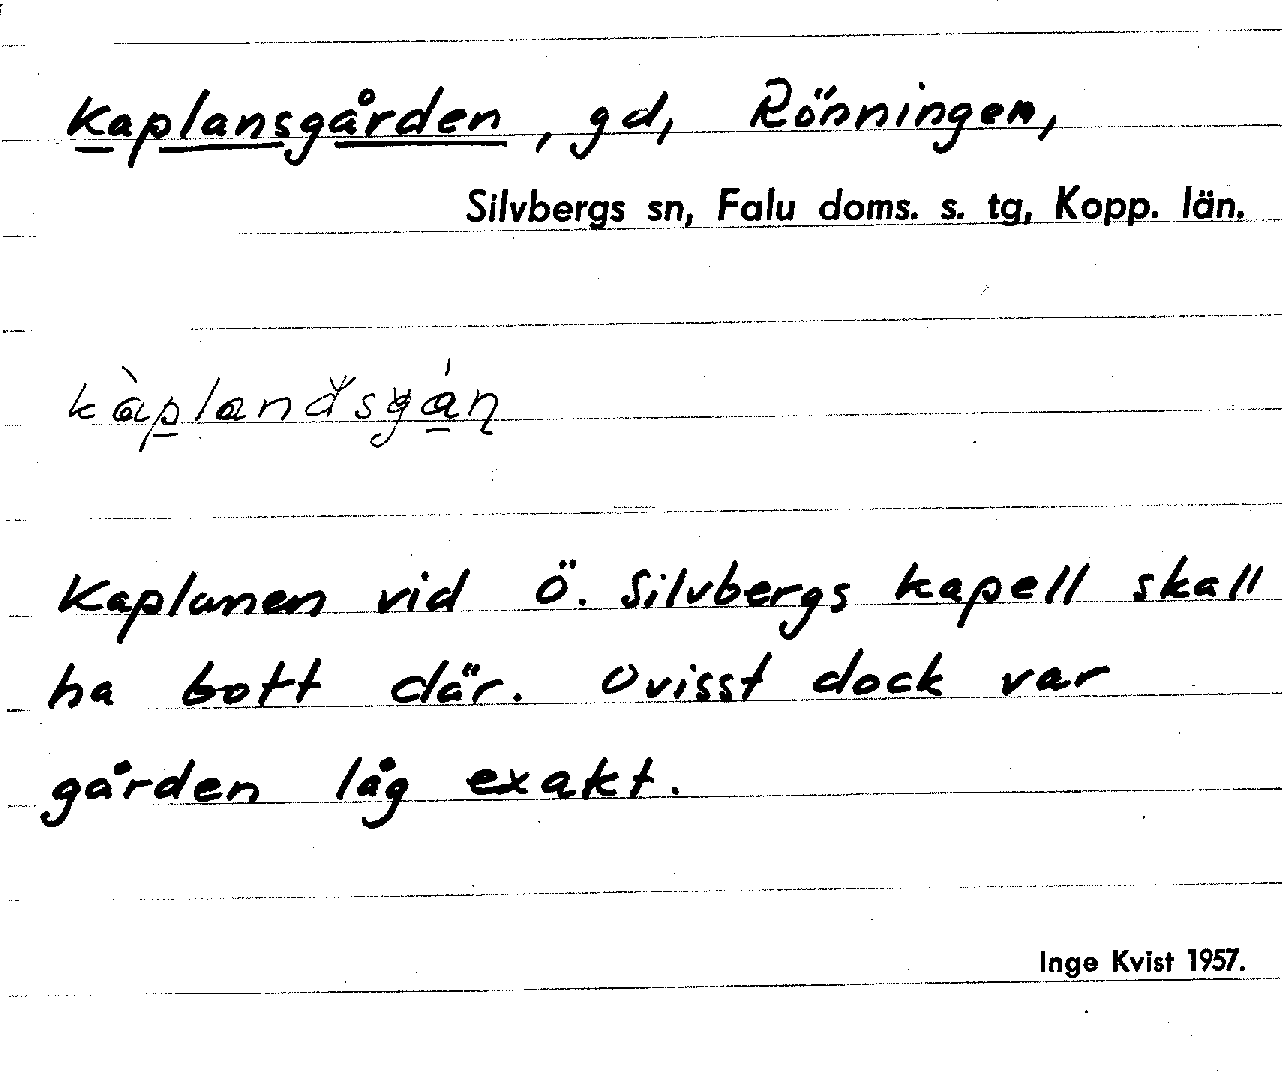 Kaplansgården, gd, Rönningen,
Silvbergs sn, Falu doms. s. tg, Kopp. län.
Kaplanen vid Ö. Silvbergs kapell skall
ha bott där. Ovisst dock var
gården låg exakt.
Inge Kvist 1957.